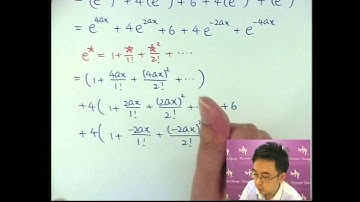 = e^{4ax} + 4e^{2ax} + 6 + 4e^{-2ax} + e^{-4ax}
e^{*} = 1 + \frac{*}{1!} + \frac{*^2}{2!} + ⋯
= ( 1 + \frac{4ax}{1!} + \frac{(4ax)^2}{2!} + ⋯ )
+ 4( 1 + \frac{2ax}{1!} + \frac{(2ax)^2}{2!} + + 6
+ 4( 1 + \frac{-2ax}{1!} + \frac{(-2ax)^2}{2!}